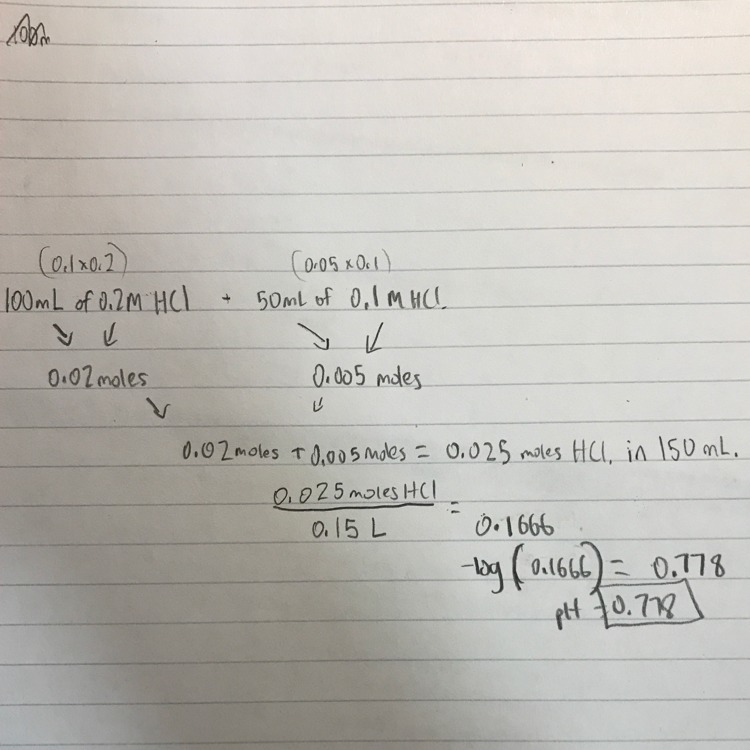 (0.1x0.2) (0.05x0.1)
100mL of 0.2M HCl + 50mL of 0.1M HCl.
↘ ↙ ↘ ↙
0.02moles 0.005 moles
↘ ↙
0.02moles + 0.005moles = 0.025 moles HCl, in 150mL.
0.025molesHCl
0.15 L
= 0.1666
-log(0.1666) = 0.778
pH = 0.778